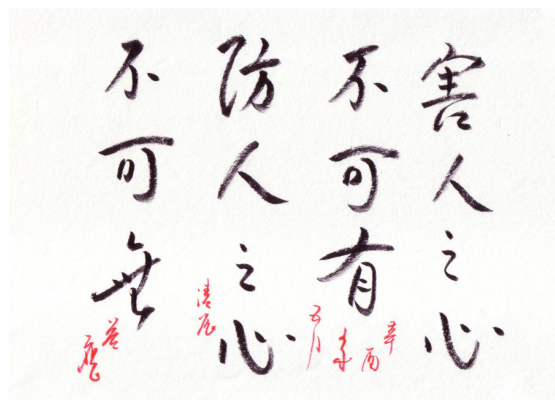 害人之心
不可有
防人之心
不可無